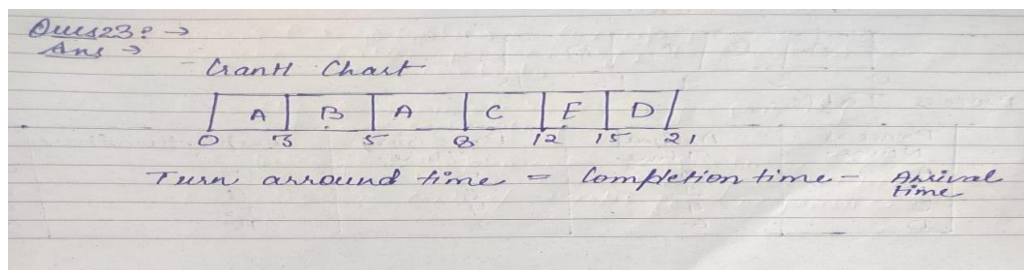 Ques23: →
Ans →
Grantt Chart
A B A C E D
0 3 5 8 12 15 21
Turn arround time = Completion time - Arrival time